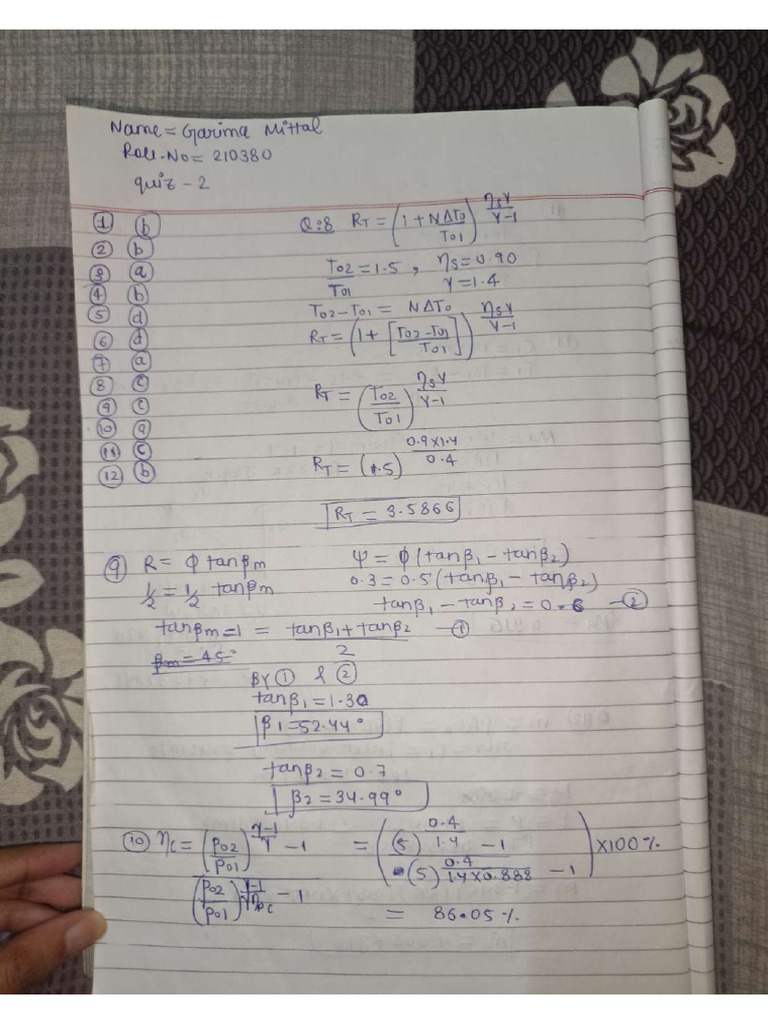 Name = Garima Mittal
Roll.No = 210380
quiz - 2
① ⓑ
② ⓑ
③ ⓐ
④ ⓑ
⑤ ⓓ
⑥ ⓓ
⑦ ⓐ
⑧ ⓒ
⑨ ⓒ
⑩ ⓐ
⑪ ⓒ
⑫ ⓑ
Q:8 RT = (1 + NΔT0/T01)^(ηsγ/γ-1)
T02/T01 = 1.5, ηs = 0.90
γ = 1.4
T02 - T01 = NΔT0
RT = (1 + [T02 - T01/T01])^(ηsγ/γ-1)
RT = (T02/T01)^(ηsγ/γ-1)
RT = (1.5)^(0.9×1.4/0.4)
RT = 3.5866
⑨ R = φ tanβm
1/2 = 1/2 tanβm
tanβm = 1 = tanβ1 + tanβ2/2 - ①
βm = 45°
ψ = φ(tanβ1 - tanβ2)
0.3 = 0.5(tanβ1 - tanβ2)
tanβ1 - tanβ2 = 0.6 - ②
BY ① & ②
tanβ1 = 1.30
β1 = 52.44°
tanβ2 = 0.7
β2 = 34.99°
⑩ ηc = (P02/P01)^(γ-1/γ) - 1 / (P02/P01)^(γ-1/γηpc) - 1 = ((5)^(0.4/1.4) - 1 / (5)^(0.4/1.4×0.888) - 1) ×100%
= 86.05%